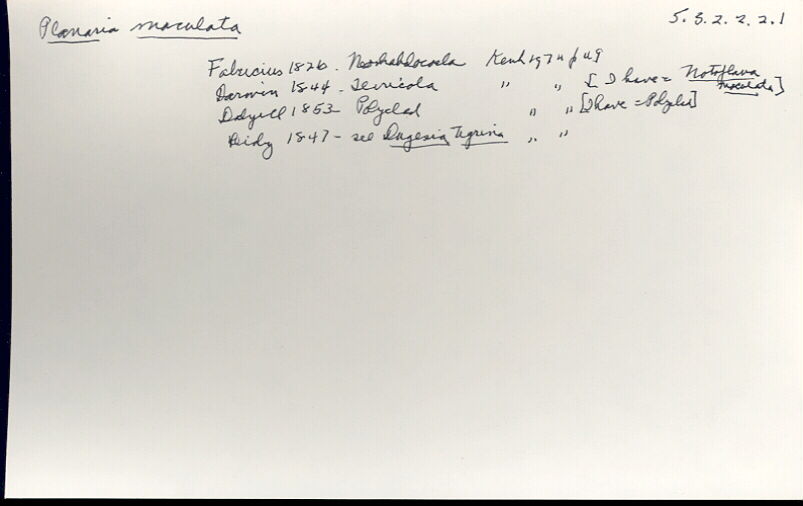 Planaria maculata
5.3.2.2.2.1
Fabricius 1826. Neorhabdocoela Kenk 1974 p 49
Darwin 1844 - Terricola " " [I have = Notoflava maculata]
Dalyell 1853 Polyclad " " [I have = Polyclad]
Leidy 1847 - see Dugesia Tigrina " "